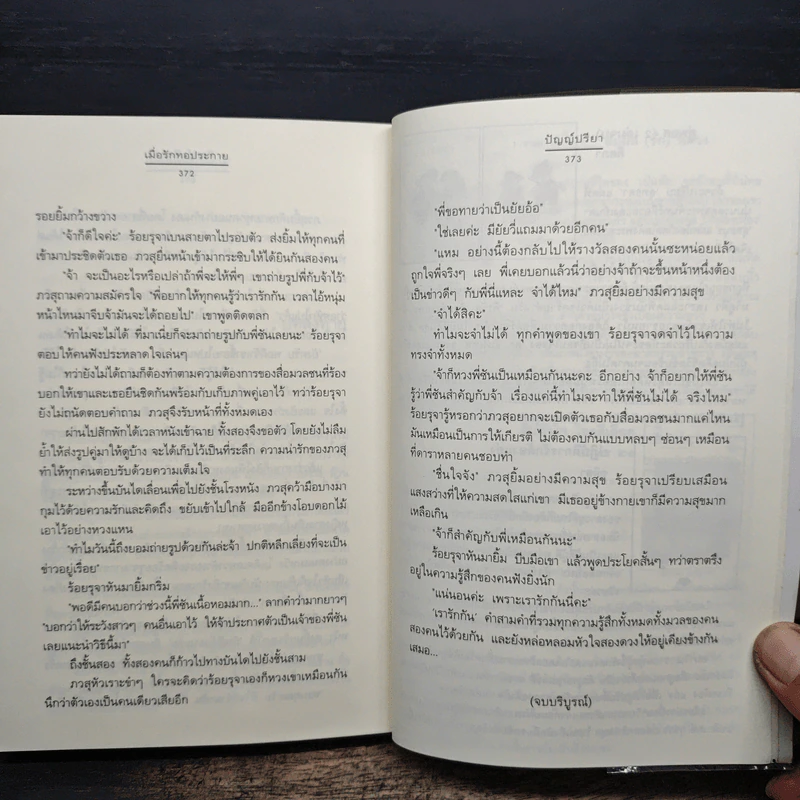 เมื่อรักทอประกาย
372
รอยยิ้มกว้างขวาง
"จ้าก็ดีใจค่ะ" ร้อยรุจาเบนสายตาไปรอบตัว ส่งยิ้มให้ทุกคนที่
เข้ามาประชิดตัวเธอ ภวสุยื่นหน้าเข้ามากระซิบให้ได้ยินกันสองคน
"จ้า จะเป็นอะไรหรือเปล่าถ้าพี่จะให้พี่ๆ เขาถ่ายรูปพี่กับจ้าไว้"
ภวสุถามความสมัครใจ "พี่อยากให้ทุกคนรู้ว่าเรารักกัน เวลาไอ้หนุ่ม
หน้าไหนมาจีบจ้ามันจะได้ถอยไป" เขาพูดติดตลก
"ทำไมจะไม่ได้ ที่มาเนี่ยก็จะมาถ่ายรูปกับพี่ซันเลยนะ" ร้อยรุจา
ตอบให้คนฟังประหลาดใจเล่นๆ
ทว่ายังไม่ได้ถามก็ต้องทำตามความต้องการของสื่อมวลชนที่ร้อง
บอกให้เขาและเธอยืนชิดกันพร้อมกับเก็บภาพคู่เอาไว้ ทว่าร้อยรุจา
ยังไม่ถนัดตอบคำถาม ภวสุจึงรับหน้าที่ทั้งหมดเอง
ผ่านไปสักพักได้เวลาหนังเข้าฉาย ทั้งสองจึงขอตัว โดยยังไม่ลืม
ย้ำให้ส่งรูปคู่มาให้ดูบ้าง จะได้เก็บไว้เป็นที่ระลึก ความน่ารักของภวสุ
ทำให้ทุกคนตอบรับด้วยความเต็มใจ
ระหว่างขึ้นบันไดเลื่อนเพื่อไปยังชั้นโรงหนัง ภวสุคว้ามือบางมา
กุมไว้ด้วยความรักและคิดถึง ขยับเข้าไปใกล้ มืออีกข้างโอบดอกไม้
เอาไว้อย่างหวงแหน
"ทำไมวันนี้ถึงยอมถ่ายรูปด้วยกันล่ะจ้า ปกติหลีกเลี่ยงที่จะเป็น
ข่าวอยู่เรื่อย"
ร้อยรุจาหันมายิ้มกริ่ม
"พอดีมีคนบอกว่าช่วงนี้พี่ซันเนื้อหอมมาก..." ลากคำว่ามากยาวๆ
"บอกว่าให้ระวังสาวๆ คนอื่นเอาไว้ ให้จ้าประกาศตัวเป็นเจ้าของพี่ซัน
เลยแนะนำวิธีนี้มา"
ถึงชั้นสอง ทั้งสองคนก็ก้าวไปทางบันไดไปยังชั้นสาม
ภวสุหัวเราะขำๆ ใครจะคิดว่าร้อยรุจาเองก็หวงเขาเหมือนกัน
นึกว่าตัวเองเป็นคนเดียวเสียอีก
ปัญญ์ปรียา
373
"พี่ขอทายว่าเป็นยัยอ้อ"
"ใช่เลยค่ะ มียัยวี่แถมมาด้วยอีกคน"
"แหม อย่างนี้ต้องกลับไปให้รางวัลสองคนนั้นซะหน่อยแล้ว
ถูกใจพี่จริงๆ เลย พี่เคยบอกแล้วนี่ว่าอย่างจ้าถ้าจะขึ้นหน้าหนึ่งต้อง
เป็นข่าวดีๆ กับพี่นี่แหละ จำได้ไหม" ภวสุยิ้มอย่างมีความสุข
"จำได้สิคะ"
ทำไมจะจำไม่ได้ ทุกคำพูดของเขา ร้อยรุจาจดจำไว้ในความ
ทรงจำทั้งหมด
"จ้าก็หวงพี่ซันเป็นเหมือนกันนะคะ อีกอย่าง จ้าก็อยากให้พี่ซัน
รู้ว่าพี่ซันสำคัญกับจ้า เรื่องแค่นี้ทำไมจะทำให้พี่ซันไม่ได้ จริงไหม"
ร้อยรุจารู้หรอกว่าภวสุอยากจะเปิดตัวเธอกับสื่อมวลชนมากแค่ไหน
มันเหมือนเป็นการให้เกียรติ ไม่ต้องคบกันแบบหลบๆ ซ่อนๆ เหมือน
ที่ดาราหลายคนชอบทำ
"ชื่นใจจัง" ภวสุยิ้มอย่างมีความสุข ร้อยรุจาเปรียบเสมือน
แสงสว่างที่ให้ความสดใสแก่เขา มีเธออยู่ข้างกายเขาก็มีความสุขมาก
เหลือเกิน
"จ้าก็สำคัญกับพี่เหมือนกันนะ"
ร้อยรุจาหันมายิ้ม บีบมือเขา แล้วพูดประโยคสั้นๆ ทว่าตราตรึง
อยู่ในความรู้สึกของคนฟังยิ่งนัก
"แน่นอนค่ะ เพราะเรารักกันนี่คะ"
'เรารักกัน' คำสามคำที่รวมทุกความรู้สึกทั้งหมดทั้งมวลของคน
สองคนไว้ด้วยกัน และยังหล่อหลอมหัวใจสองดวงให้อยู่เคียงข้างกัน
เสมอ...
(จบบริบูรณ์)